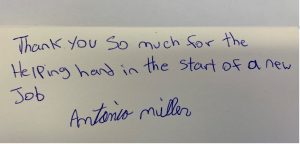 Thank you so much for the
Helping hand in the start of a new
Job
Antonio miller